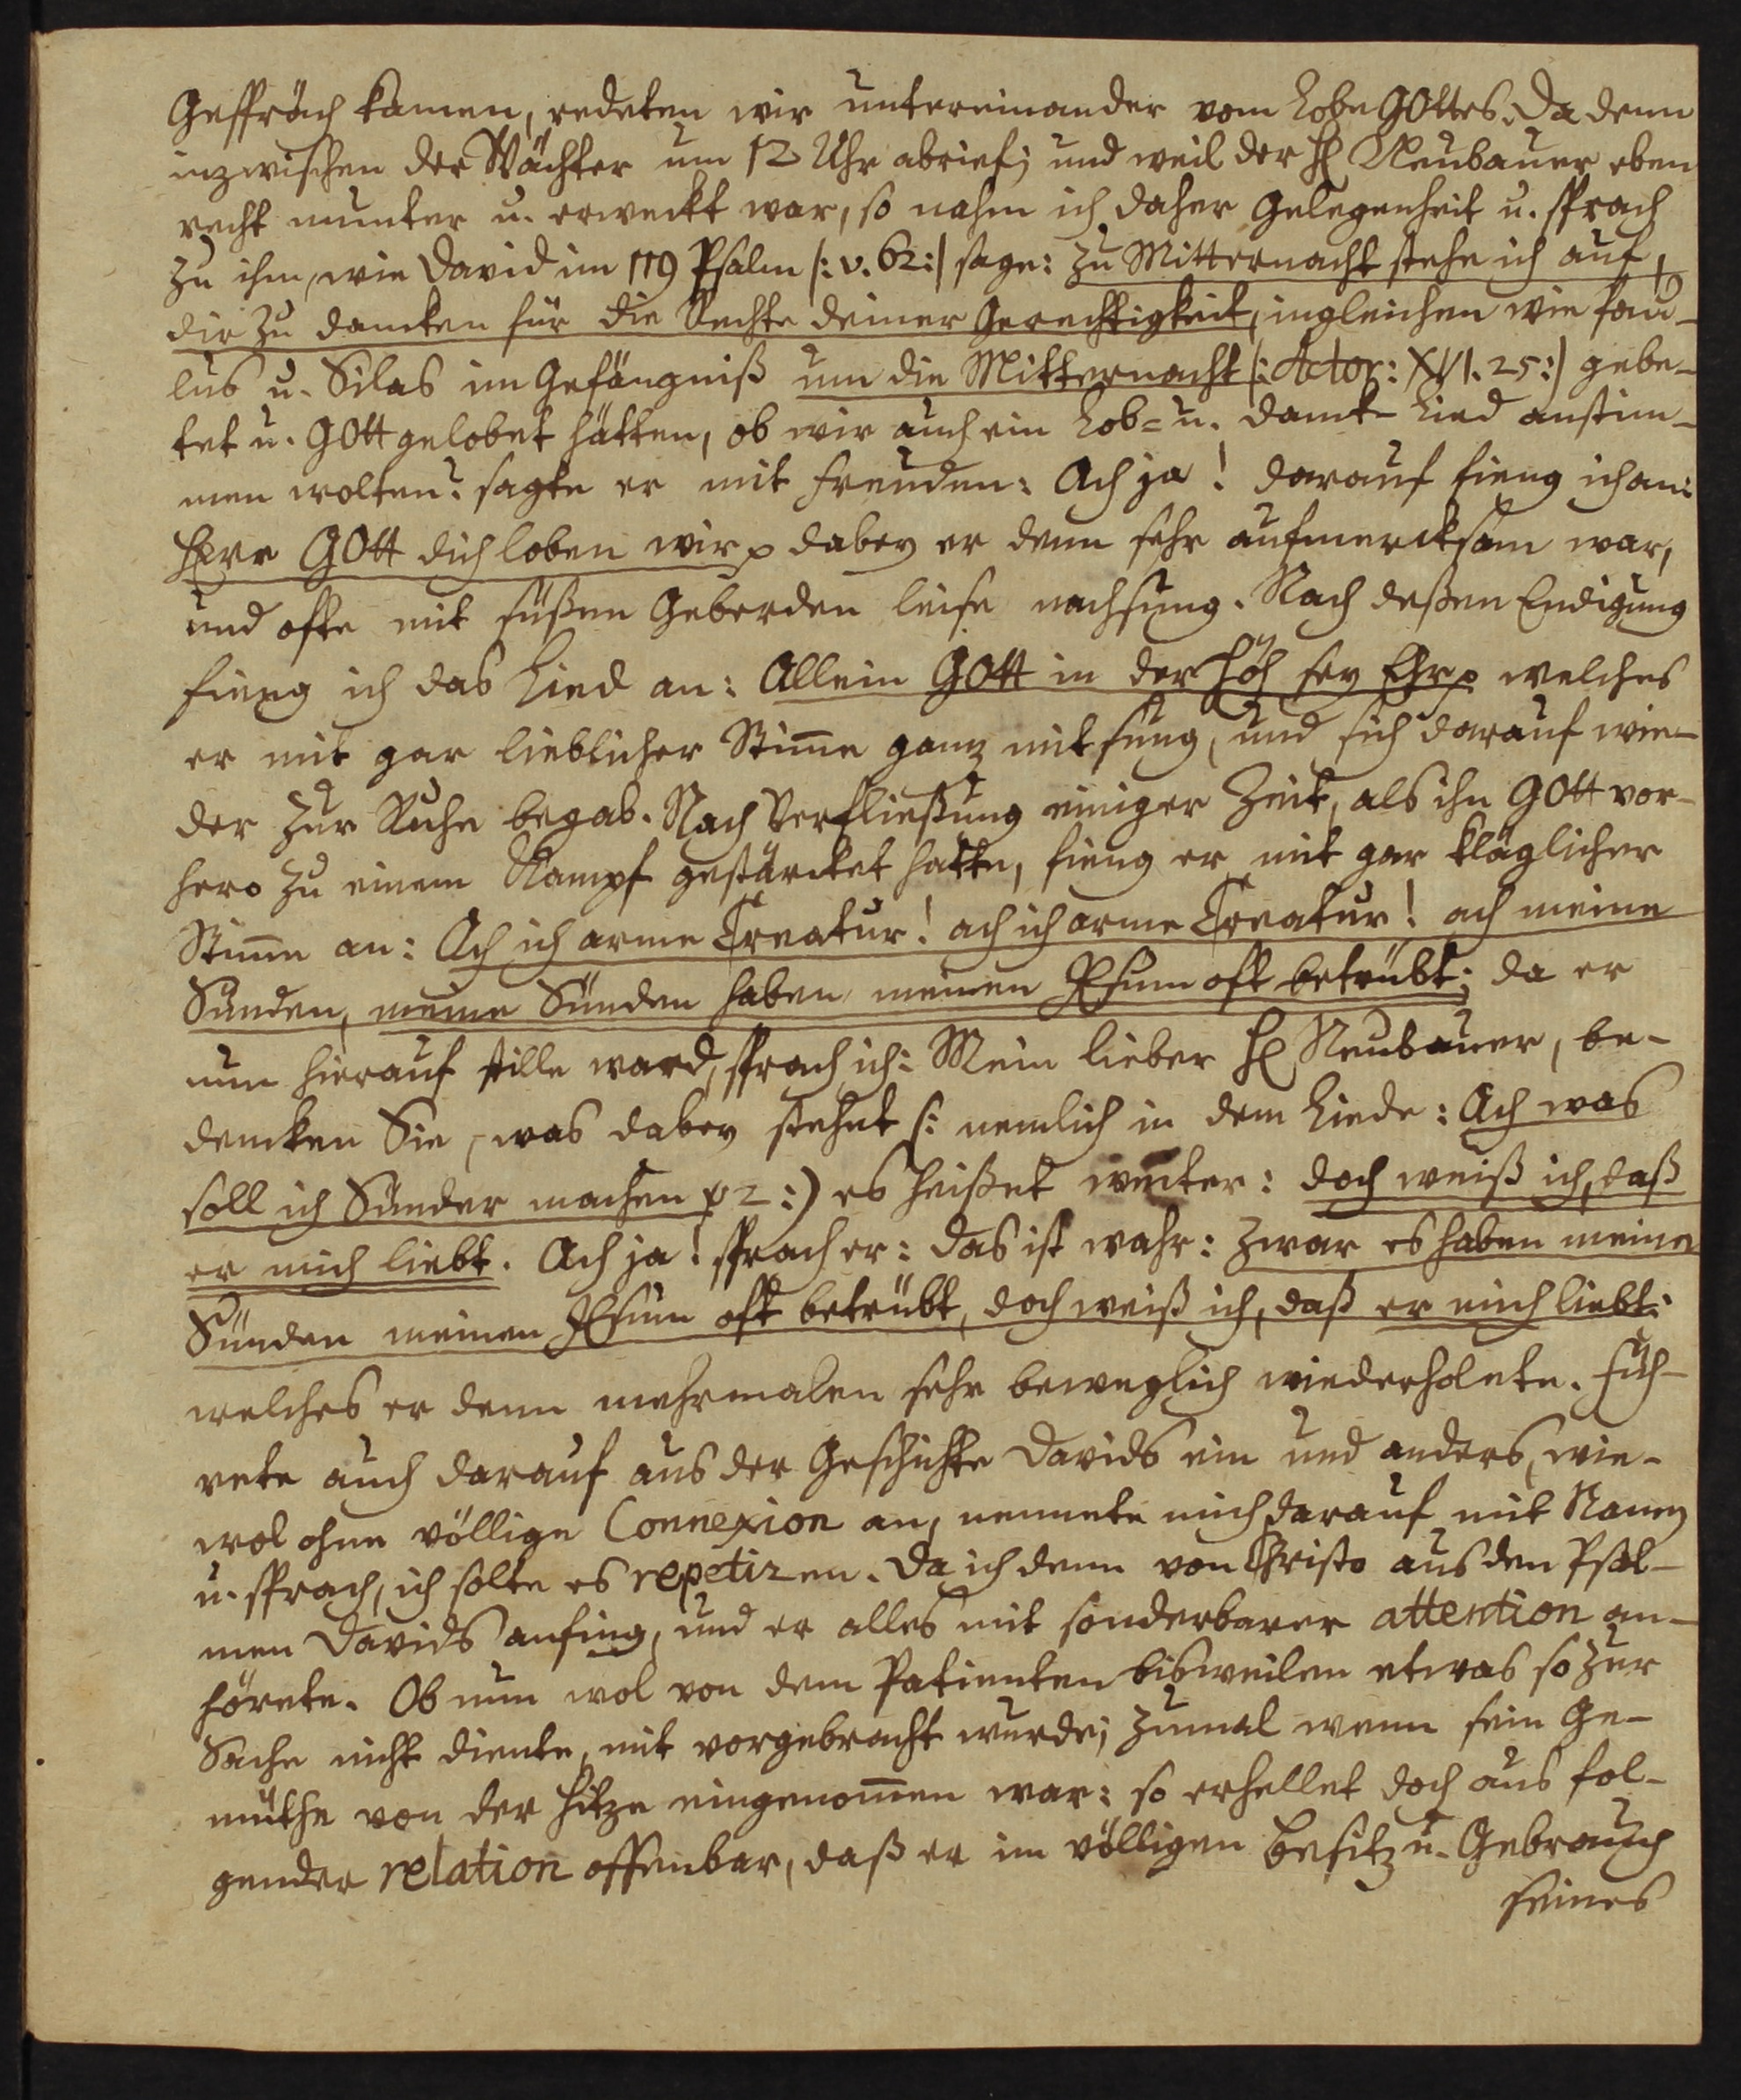 Gespräch kamen, redeten wir untereinander vom Lobe GOttes. Da denn
inzwischen der Wächter um 12 Uhr abrief; und weil der H. Neubauer eben
recht munter u. erweckt war, so nahm ich daher Gelegenheit u. sprach
zu ihm, wie David im 119 Psalm /: v. 62:/ sage: Zu Mitternacht stehe ich auf,
dir zu dancken für die Rechte deiner Gerechtigkeit, ingleichen wie Pau-
lus u. Silas im Gefängniß um die Mitternacht /: Actor: XVI. 25:/ gebe-
tet u. GOtt gelobet hätten, ob wir auch ein Lob= u. Danck- Lied anstim-
men wolten? sagte er mit Freuden: Ach ja! darauf fieng ich an:
HErr GOtt dich loben wir p dabey er denn sehr aufmercksam war,
und offte mit süßen Geberden leise nachsung. Nach deßen Endigung
fieng ich das Lied an: Allein GOtt in der Höh sey Ehr p welches
er mit gar lieblicher Stim̅e ganz mitsung, und sich darauf wie-
der zur Ruhe begab. Nach Verfließung einiger Zeit, als ihn GOtt vor-
hero zu einem Kampf gestärcket hatte, fieng er mit gar kläglicher
Stim̅e an: Ach ich arme Creatur! ach ich arme Creatur! ach meine
Sünden, meine Sünden haben meinen JEsum oft betrübt; da er
nun hierauf stille ward, sprach ich: Mein lieber H. Neubauer, be-
dencken Sie, was dabey stehet /: nemlich in dem Liede: Ach was
soll ich Sünder machen p 2:) es heißet weiter: doch weiß ich, daß
er mich liebt. Ach ja! sprach er: das ist wahr: Zwar es haben meine
Sünden meinen JEsum oft betrübt, doch weiß ich, daß er mich liebt:
welches er denn mehrmalen sehr beweglich wiederholete. Füh-
rete auch darauf aus der Geschichte Davids ein und anders, wie-
wol ohne völlige Connexion an, nennete mich darauf mit Namen
u. sprach, ich solte es repetiren. Da ich denn von Christo aus den Psal-
men Davids anfing, und er alles mit sonderbarer attention an-
hörete. Ob nun wol von dem Patienten bisweilen etwas so zur
Sache nicht diente, mit vorgebracht wurde; zumal wenn sein Ge-
müthe von der Hitze eingenom̅en war: so erhellet doch aus fol-
gender relation offenbar, daß er im völligen Besitz u. Gebrauch
seines